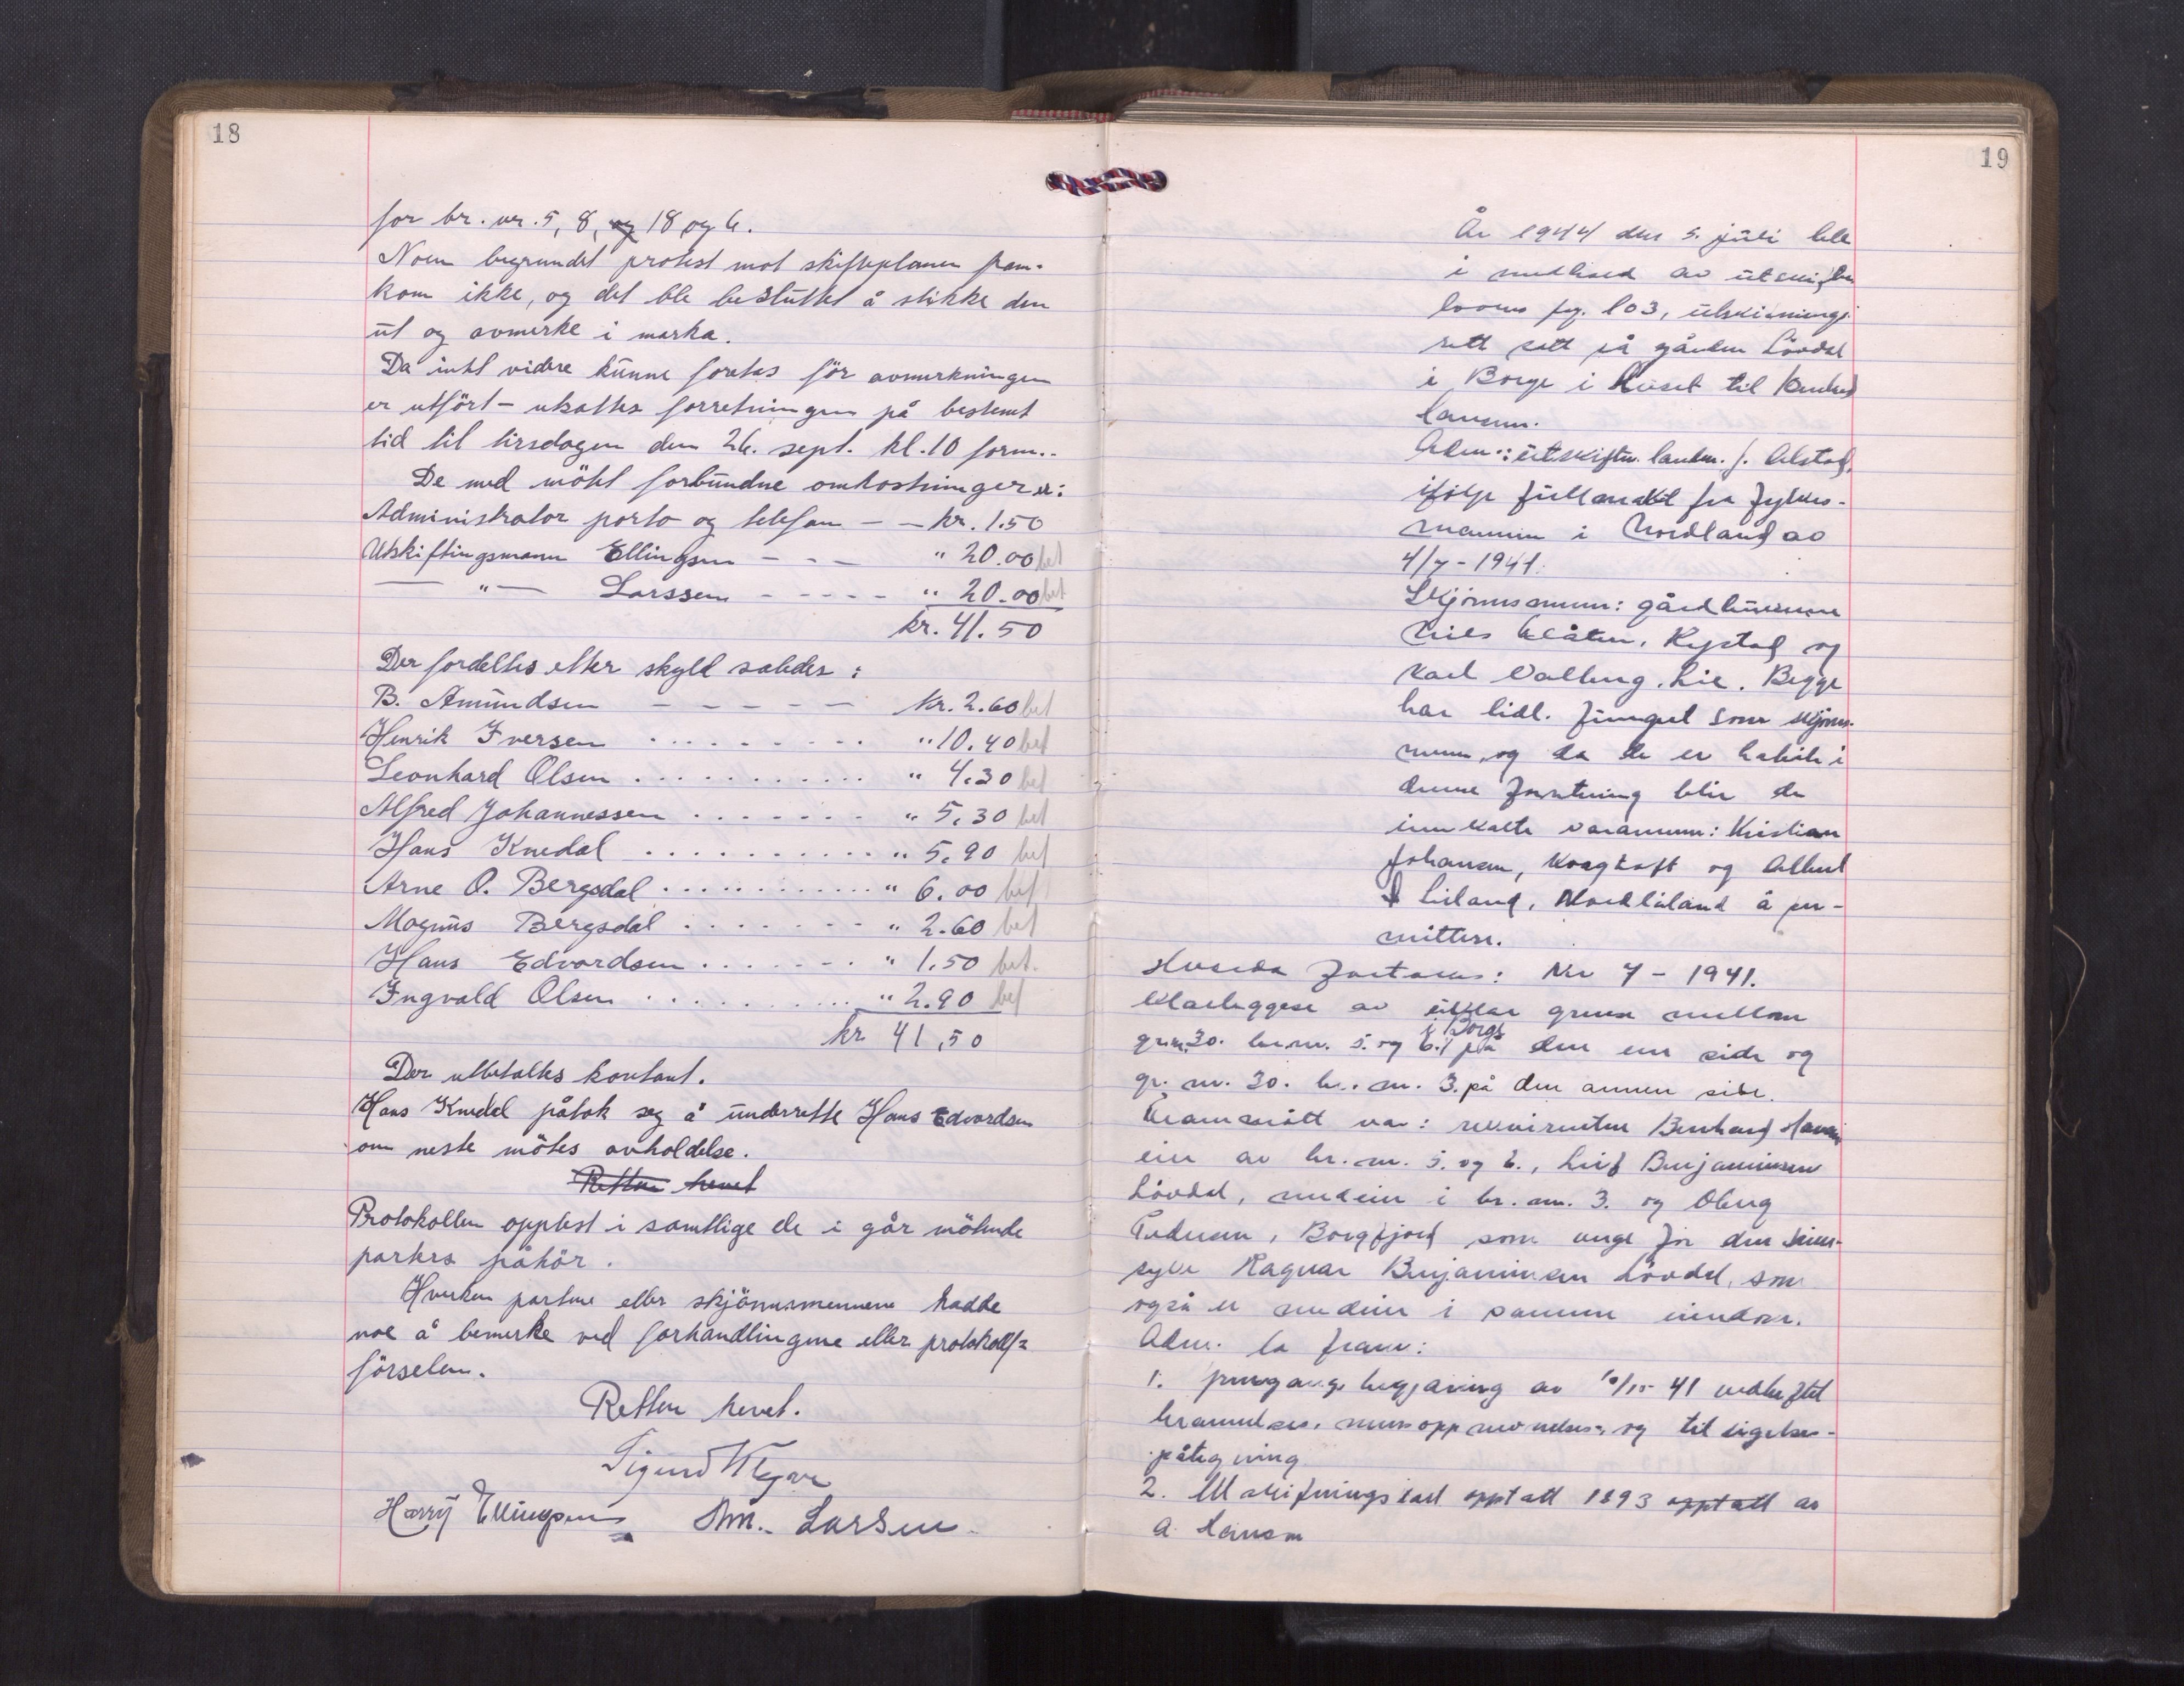 18
for br. nr. 5, 8, og 18 og 6.
Noen begrundet protest mot skifteplanen fram-
kom ikke, og det ble besluttet å stikke den
ut og avmerke i marka.
Da intet videre kunne foretas før avmerkningen
er utført - utsattes forretningen på bestemt
tid til tirsdagen den 26. sept. kl. 10 form..
De med møtet forbundne omkostninger er:
Administrator porto og telefon - - kr. 1.50
Utskiftingsmann Ellingsen - - - " 20.00 bet
— " — Larssen - - - - - " 20.00 bet
kr. 41.50
Der fordeltes etter skyld således:
B. Amundsen - - - - - kr. 2.60 bet
Henrik Iversen . . . . . . . . . " 10.40 bet
Leonhard Olsen . . . . . . . . . . " 4.30 bet
Alfred Johannessen . . . . . . . " 5.30 bet
Hans Knedal . . . . . . . . . . " 5.90 bet
Arne O. Bergsdal . . . . . . . . . . . " 6.00 bet
Magnus Bergsdal . . . . . . . " 2.60 bet
Hans Edvardsen . . . . . . . " 1.50 bet.
Ingvald Olsen . . . . . . . . . . " 2.90 bet
kr 41,50
Der utbetaltes kontant.
Hans Knedal påtok seg å underrette Hans Edvardsen
om neste møtes avholdelse.
Retten hevet
Protokollen opplest i samtlige de i går møtende
parters påhør.
Hverken partene eller skjønnsmennene hadde
noe å bemerke ved forhandlingene eller protokoll-
førselen.
Retten hevet.
Sigurd
Harry Ellingsen Am. Larsen
19
År 1944 den 5. juli ble
i medhold av utskiftn
lovens pg. 103, utskiftnings
rett satt på gården Lövdal
i Borge i huset til
Hansen.
Adm.: utskiftn. landm. J. Alstad,
ifölge fullmakt fra fylkes-
mannen i Nordland av
4/7 - 1941.
Skjönnsmenn: gårdbrukerne
Nils Klåten, Rystad og
Karl Valberg, Lie. Begge
har tidl. fungert som skjönns-
menn, og da de er habile i
denne forretning blir de
innkalte varamenn: Kristian
Johansen, Voagtoft og Albert
Liland, Nordliland å per-
mittere.
Hvorda foretaes: Nr 7 - 1941.
Klarleggese av uklar grense mellom
gr.nr. 30. br.nr. 5. og 6. i Borge på den ene side og
gr. nr. 30. br. nr. 3. på den annen side.
Frammött var: rekvirenten Bernhard Hansen
eier av br. nr. 5. og 6., Leif Benjaminsen
Lövdal, medeier i br. nr. 3. og Oberg
Pedersen, Borgfjord som verge for den sinns-
syke Ragnar Benjaminsen Lövdal, som
også er medeier i samme eiendom.
Adm. la fram:
1. grensegangsbegjæring av 10/10- 41 vedheftet
berammelses-, mennoppnevnelses- og tilsigelses-
påtegning
2. Utskiftningskart opptatt 1893 opptatt av
A. Hanson